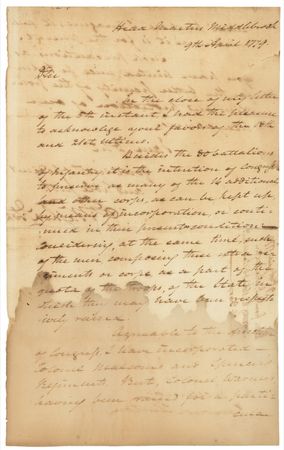 Head Quarters Middlebrook
9th April 1779
Sir
In the close of my letter
of the 5th instant, I had the pleasure
to acknowledge your favors of the 18th
and 21st Ultimo.
Besides the 80 battalions
of Infantry, it is the intention of Congress
to preserve as many of the 16 additional
and other corps, as can be kept up
by means of incorporation, or conti-
nued in their present condition
considering, at the same time, such
of the men composing these latter re-
giments or corps as a part of the
quota of the troops, of the State, in
which they may have been respect-
ively raised.
Agreeable to the
of Congress, I have incorporated
Colonel Malcoms and Spencers
Regiment. But, Colonel Warners
having been raised for a parti-
cular